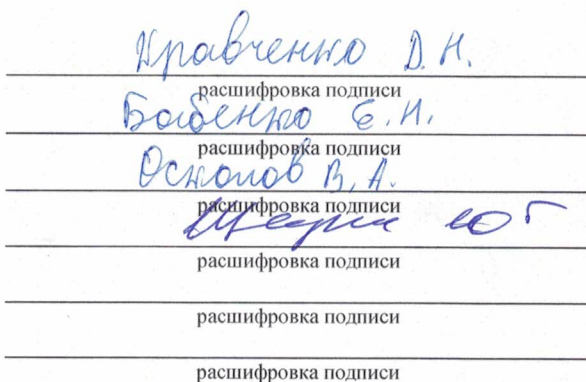 Кравченко Д. Н.
расшифровка подписи
Бабенко Е. Н.
расшифровка подписи
Осколов В. А.
расшифровка подписи
Ю Г
расшифровка подписи
расшифровка подписи
расшифровка подписи